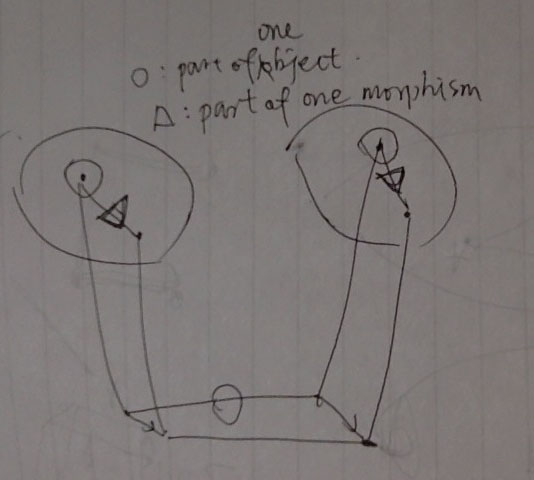 one
O : part of object.
Δ : part of one morphism